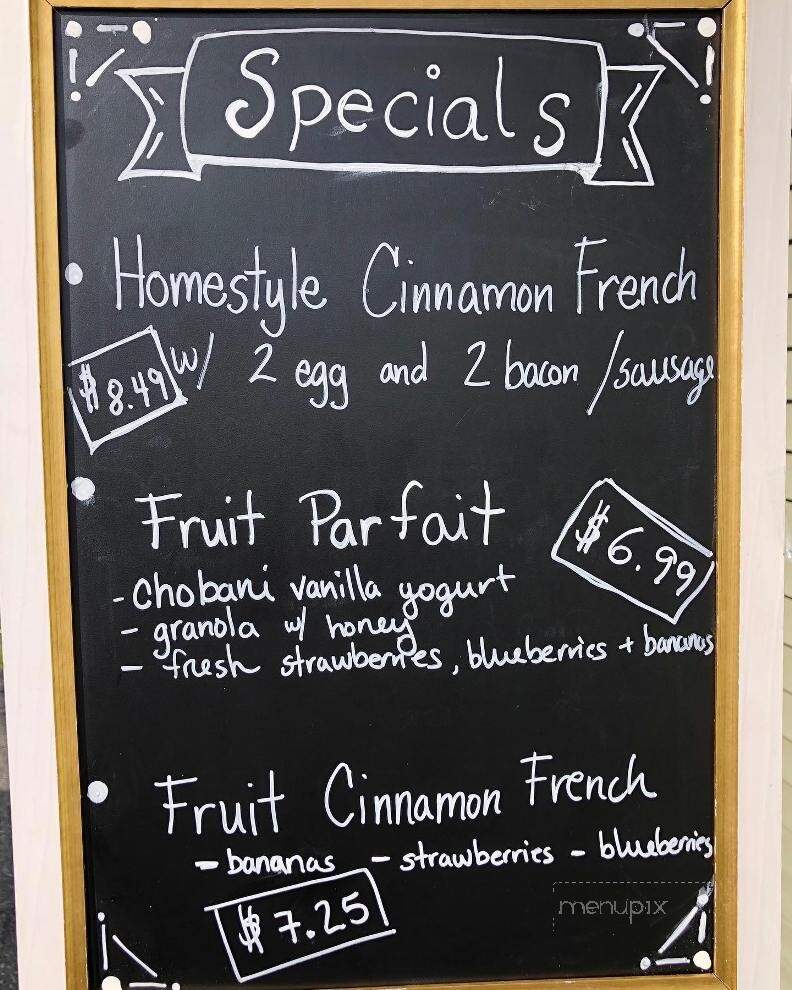 Specials
Homestyle Cinnamon French
w/ 2 egg and 2 bacon /sausage
$8.49
Fruit Parfait
$6.99
-Chobani vanilla yogurt
- granola w/ honey
- fresh strawberries, blueberries + bananas
Fruit Cinnamon French
- bananas - strawberries - blueberries
$7.25
menupix